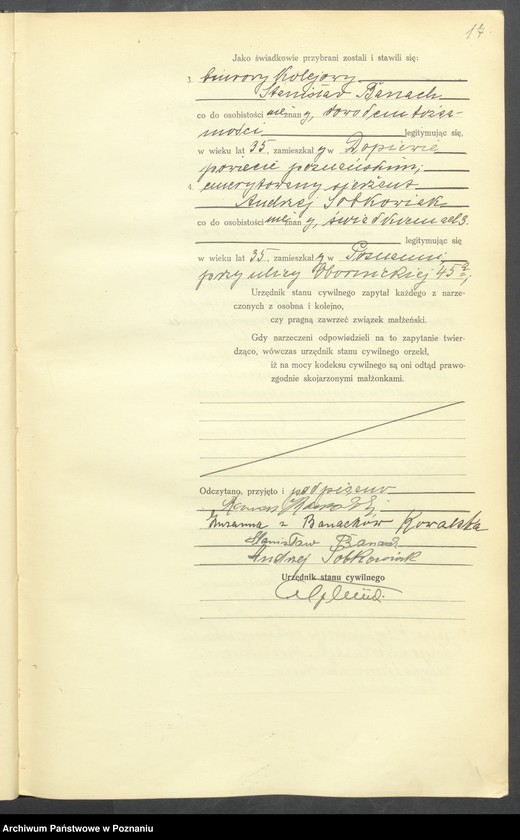 17.
Jako świadkowie przybrani zostali i stawili się:
3. biurowy kolejowy
Stanisław Banach
co do osobistości nieznany, dowodem tożsa-
mości legitymując się,
w wieku lat 35, zamieszkały w Dopiewie
powiecie poznańskim;
4. emerytowany sierżant
Andrzej Sobkowiak
co do osobistości nieznany, świadkiem ad 3.
legitymując się
w wieku lat 35, zamieszkały w Poznaniu
przy ulicy Obornickiej 45
Urzędnik stanu cywilnego zapytał każdego z narze-
czonych z osobna i kolejno,
czy pragną zawrzeć związek małżeński.
Gdy narzeczeni odpowiedzieli na to zapytanie twier-
dząco, wówczas urzędnik stanu cywilnego orzekł,
iż na mocy kodeksu cywilnego są oni odtąd prawo-
zgodnie skojarzonymi małżonkami.
Odczytano, przyjęto i podpisano
Zuzanna z Banachów Kowalska
Stanisław Banach
Andrzej Sobkowiak
Urzędnik stanu cywilnego
Archiwum Państwowe w Poznaniu